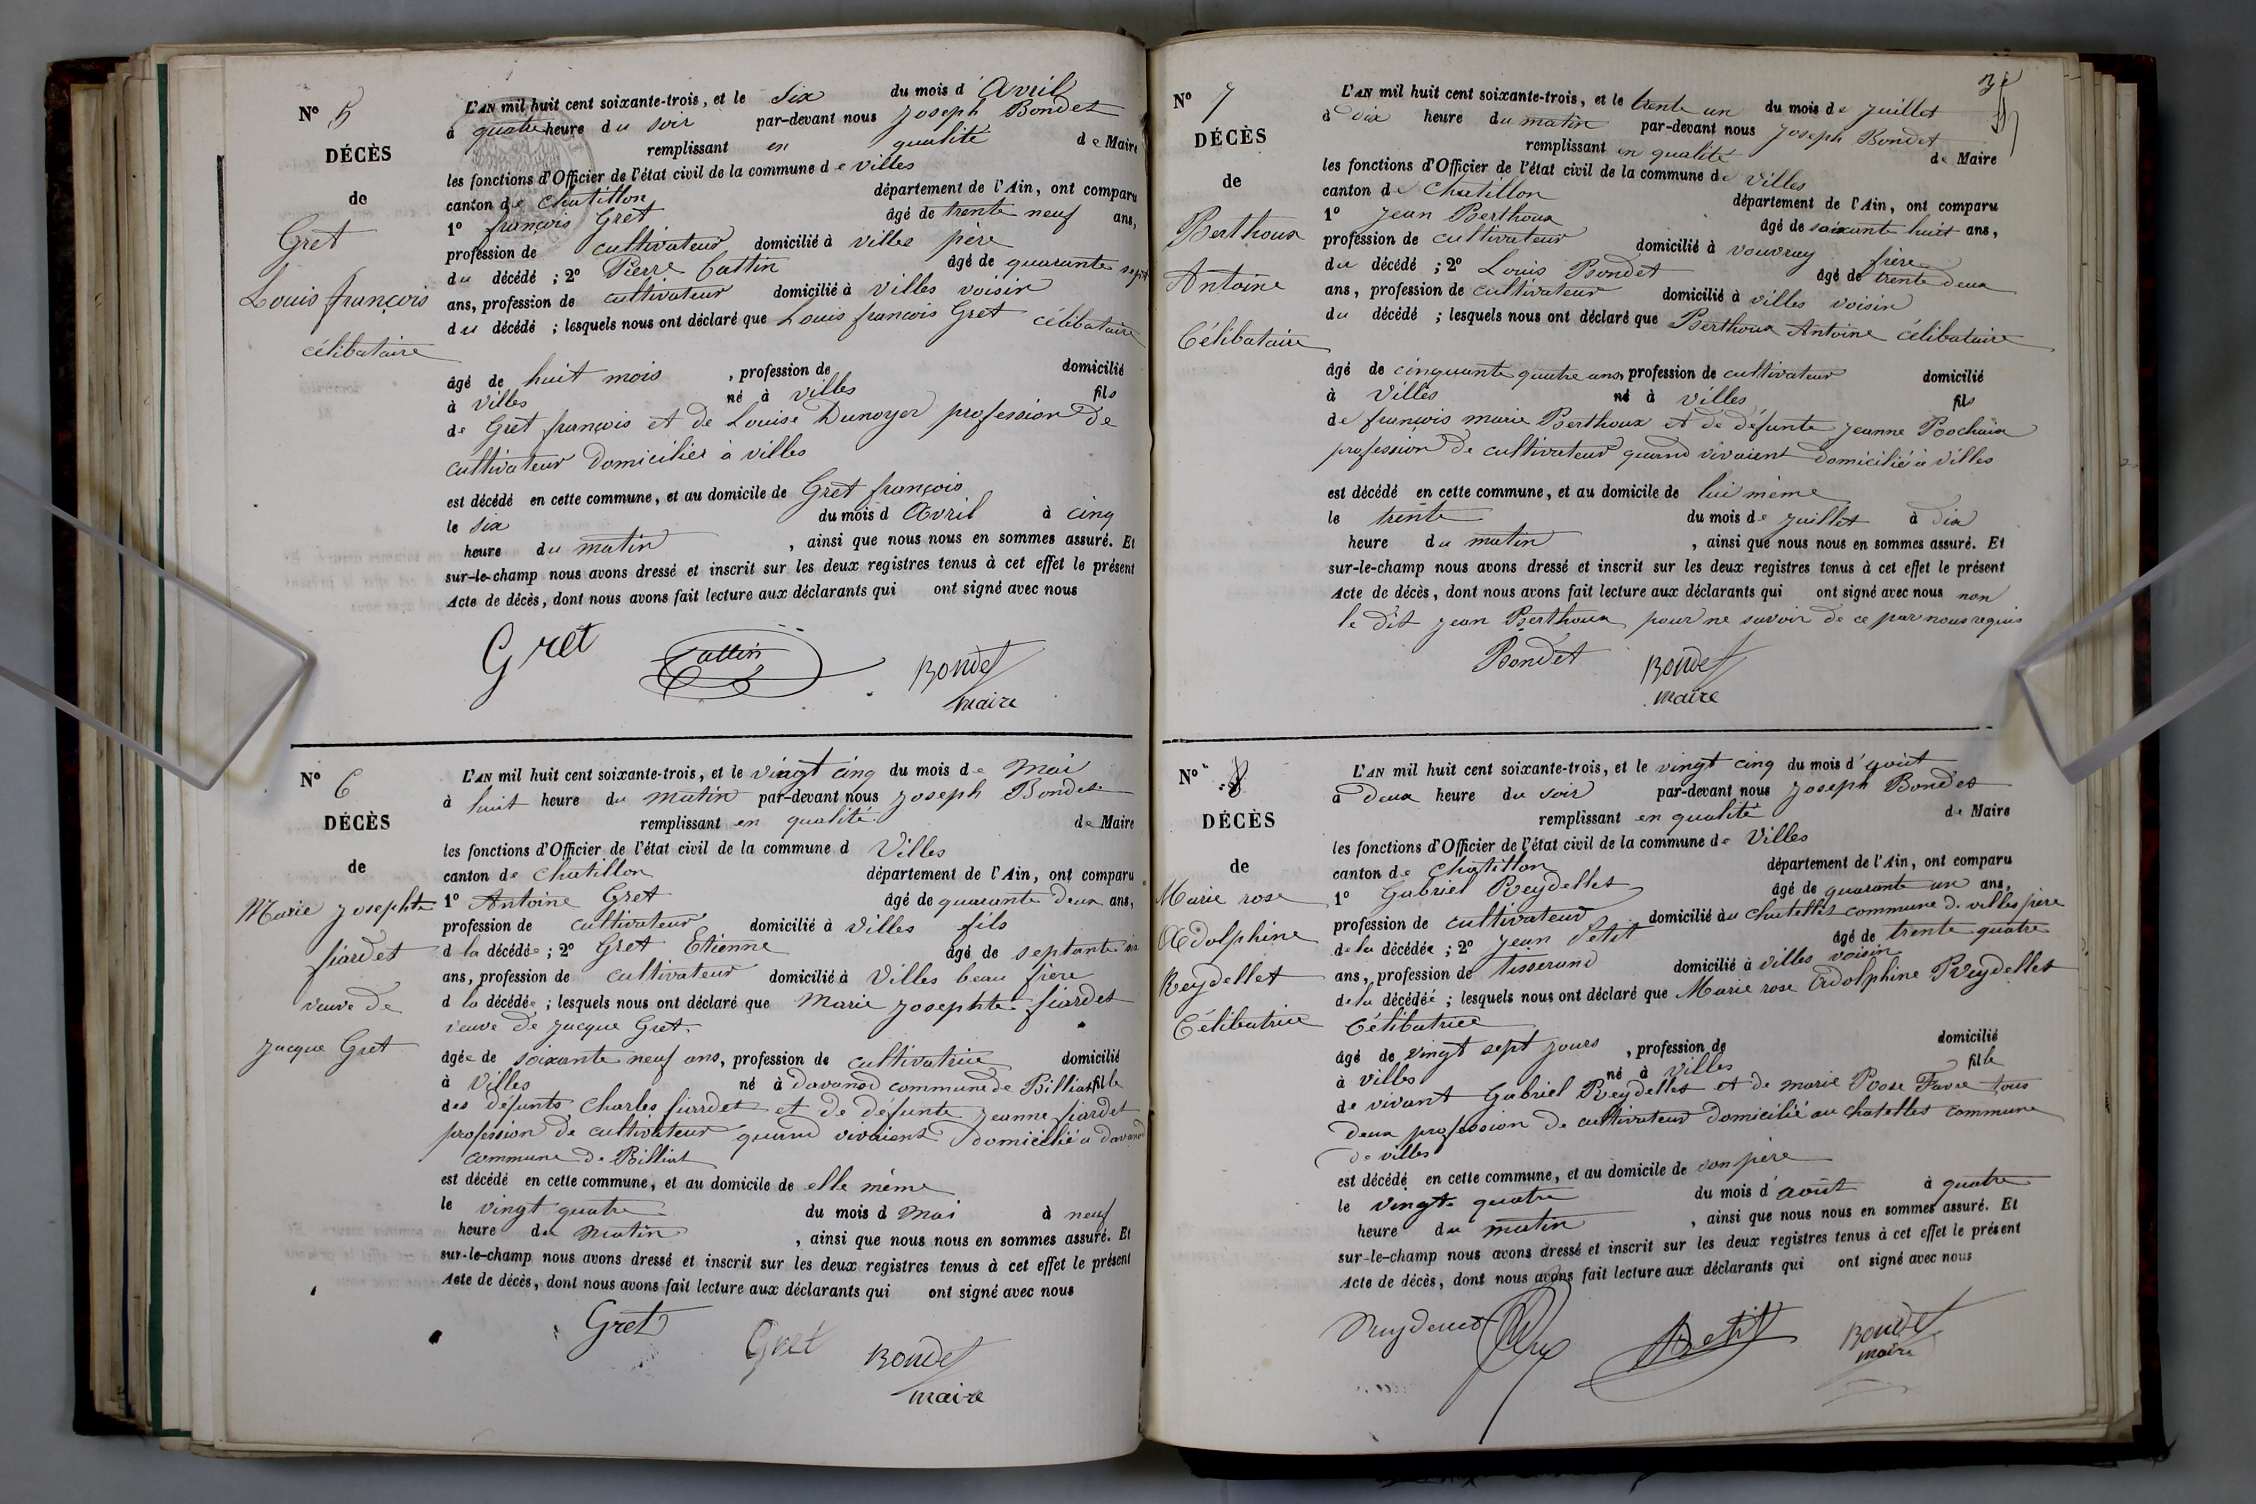 N° 5
DÉCÈS
de
Gret
Louis françois
célibataire
L'AN mil huit cent soixante-trois, et le Six du mois d'Avril
à quatre heure du soir par-devant nous Joseph Bondet
remplissant en qualité de Maire
les fonctions d'Officier de l'état civil de la commune de villes
canton de Chatillon département de l'Ain, ont comparu
1° françois Gret âgé de trente neuf ans,
profession de cultivateur domicilié à villes père
du décédé ; 2° Pierre Cattin âgé de quarante sept
ans, profession de cultivateur domicilié à villes voisin
du décédé ; lesquels nous ont déclaré que Louis francois Gret célibataire
âgé de huit mois , profession de domicilié
à villes né à villes fils
de Gret françois et de Louise Dunoyer profession de
cultivateur domiciliés à villes
est décédé en cette commune, et au domicile de Gret françois
le six du mois d Avril à cinq
heure du matin , ainsi que nous nous en sommes assuré. Et
sur-le-champ nous avons dressé et inscrit sur les deux registres tenus à cet effet le présent
Acte de décès, dont nous avons fait lecture aux déclarants qui ont signé avec nous
Gret Cattin Bondet
maire
N° 6
DÉCÈS
de
Marie Josephte
fiardet
veuve de
Jacque Gret
L'AN mil huit cent soixante-trois, et le vingt cinq du mois de Mai
à huit heure du matin par-devant nous Joseph Bondet
remplissant en qualité de Maire
les fonctions d'Officier de l'état civil de la commune d Villes
canton de Chatillon département de l'Ain, ont comparu
1° Antoine Gret âgé de quarante deux ans,
profession de cultivateur domicilié à villes fils
d la décédée ; 2° Gret Etienne âgé de septante six
ans, profession de cultivateur domicilié à Villes beau frère
d la décédée ; lesquels nous ont déclaré que Marie Josephte fiardet
veuve de Jacque Gret
âgée de soixante neuf ans, profession de cultivatrice domicilié
à Villes né à davanod commune de Billiat fille
des défunts Charles fiardet et de défunte Jeanne fiardet
profession de cultivateur quand vivaient domicilié à davanod
commune de Billiat
est décédé en cette commune, et au domicile de elle même
le vingt quatre du mois d Mai à neuf
heure du Matin , ainsi que nous nous en sommes assuré. Et
sur-le-champ nous avons dressé et inscrit sur les deux registres tenus à cet effet le présent
Acte de décès, dont nous avons fait lecture aux déclarants qui ont signé avec nous
Gret Gret Bondet
maire
N° 7
DÉCÈS
de
Berthoux
Antoine
Célibataire
L'AN mil huit cent soixante-trois, et le trente un du mois de Juillet
à dix heure du matin par-devant nous Joseph Bondet
remplissant en qualité de Maire
les fonctions d'Officier de l'état civil de la commune de Villes
canton de Chatillon département de l'Ain, ont comparu
1° Jean Berthoux âgé de soixante huit ans,
profession de cultivateur domicilié à vouvray frère
du décédé ; 2° Louis Bondet âgé de trente deux
ans, profession de cultivateur domicilié à villes voisin
du décédé ; lesquels nous ont déclaré que Berthoux Antoine célibataire
âgé de cinquante quatre ans, profession de cultivateur domicilié
à Villes né à villes fils
de françois marie Berthoux et de défunte Jeanne Rochaix
profession de cultivateur quand vivaient domicilié à Villes
est décédé en cette commune, et au domicile de lui même
le trente du mois de Juillet à dix
heure du matin , ainsi que nous nous en sommes assuré. Et
sur-le-champ nous avons dressé et inscrit sur les deux registres tenus à cet effet le présent
Acte de décès, dont nous avons fait lecture aux déclarants qui ont signé avec nous non
le dit Jean Berthoux pour ne savoir de ce par nous requis
Bondet Bondet
maire
N° 8
DÉCÈS
de
Marie rose
Adolphine
Reydellet
Célibatrice
L'AN mil huit cent soixante-trois, et le vingt cinq du mois d'août
à Deux heure du soir par-devant nous Joseph Bondet
remplissant en qualité de Maire
les fonctions d'Officier de l'état civil de la commune de Villes
canton de Chatillon département de l'Ain, ont comparu
1° Gabriel Reydellet âgé de quarante un ans,
profession de cultivateur domicilié au chatellet commune de villes père
de la décédée ; 2° Jean Petit âgé de trente quatre
ans, profession de tisserand domicilié à villes voisin
de la décédée ; lesquels nous ont déclaré que Marie rose Adolphine Reydellet
Célibatrice
âgé de vingt sept jours , profession de domicilié
à villes né à villes fille
de vivant Gabriel Reydellet et de marie Rose Favre tous
deux profession de cultivateur domicilié au chatellet commune
de villes
est décédé en cette commune, et au domicile de son père
le vingt quatre du mois d'août à quatre
heure du matin , ainsi que nous nous en sommes assuré. Et
sur-le-champ nous avons dressé et inscrit sur les deux registres tenus à cet effet le présent
Acte de décès, dont nous avons fait lecture aux déclarants qui ont signé avec nous
Petit Bondet
maire